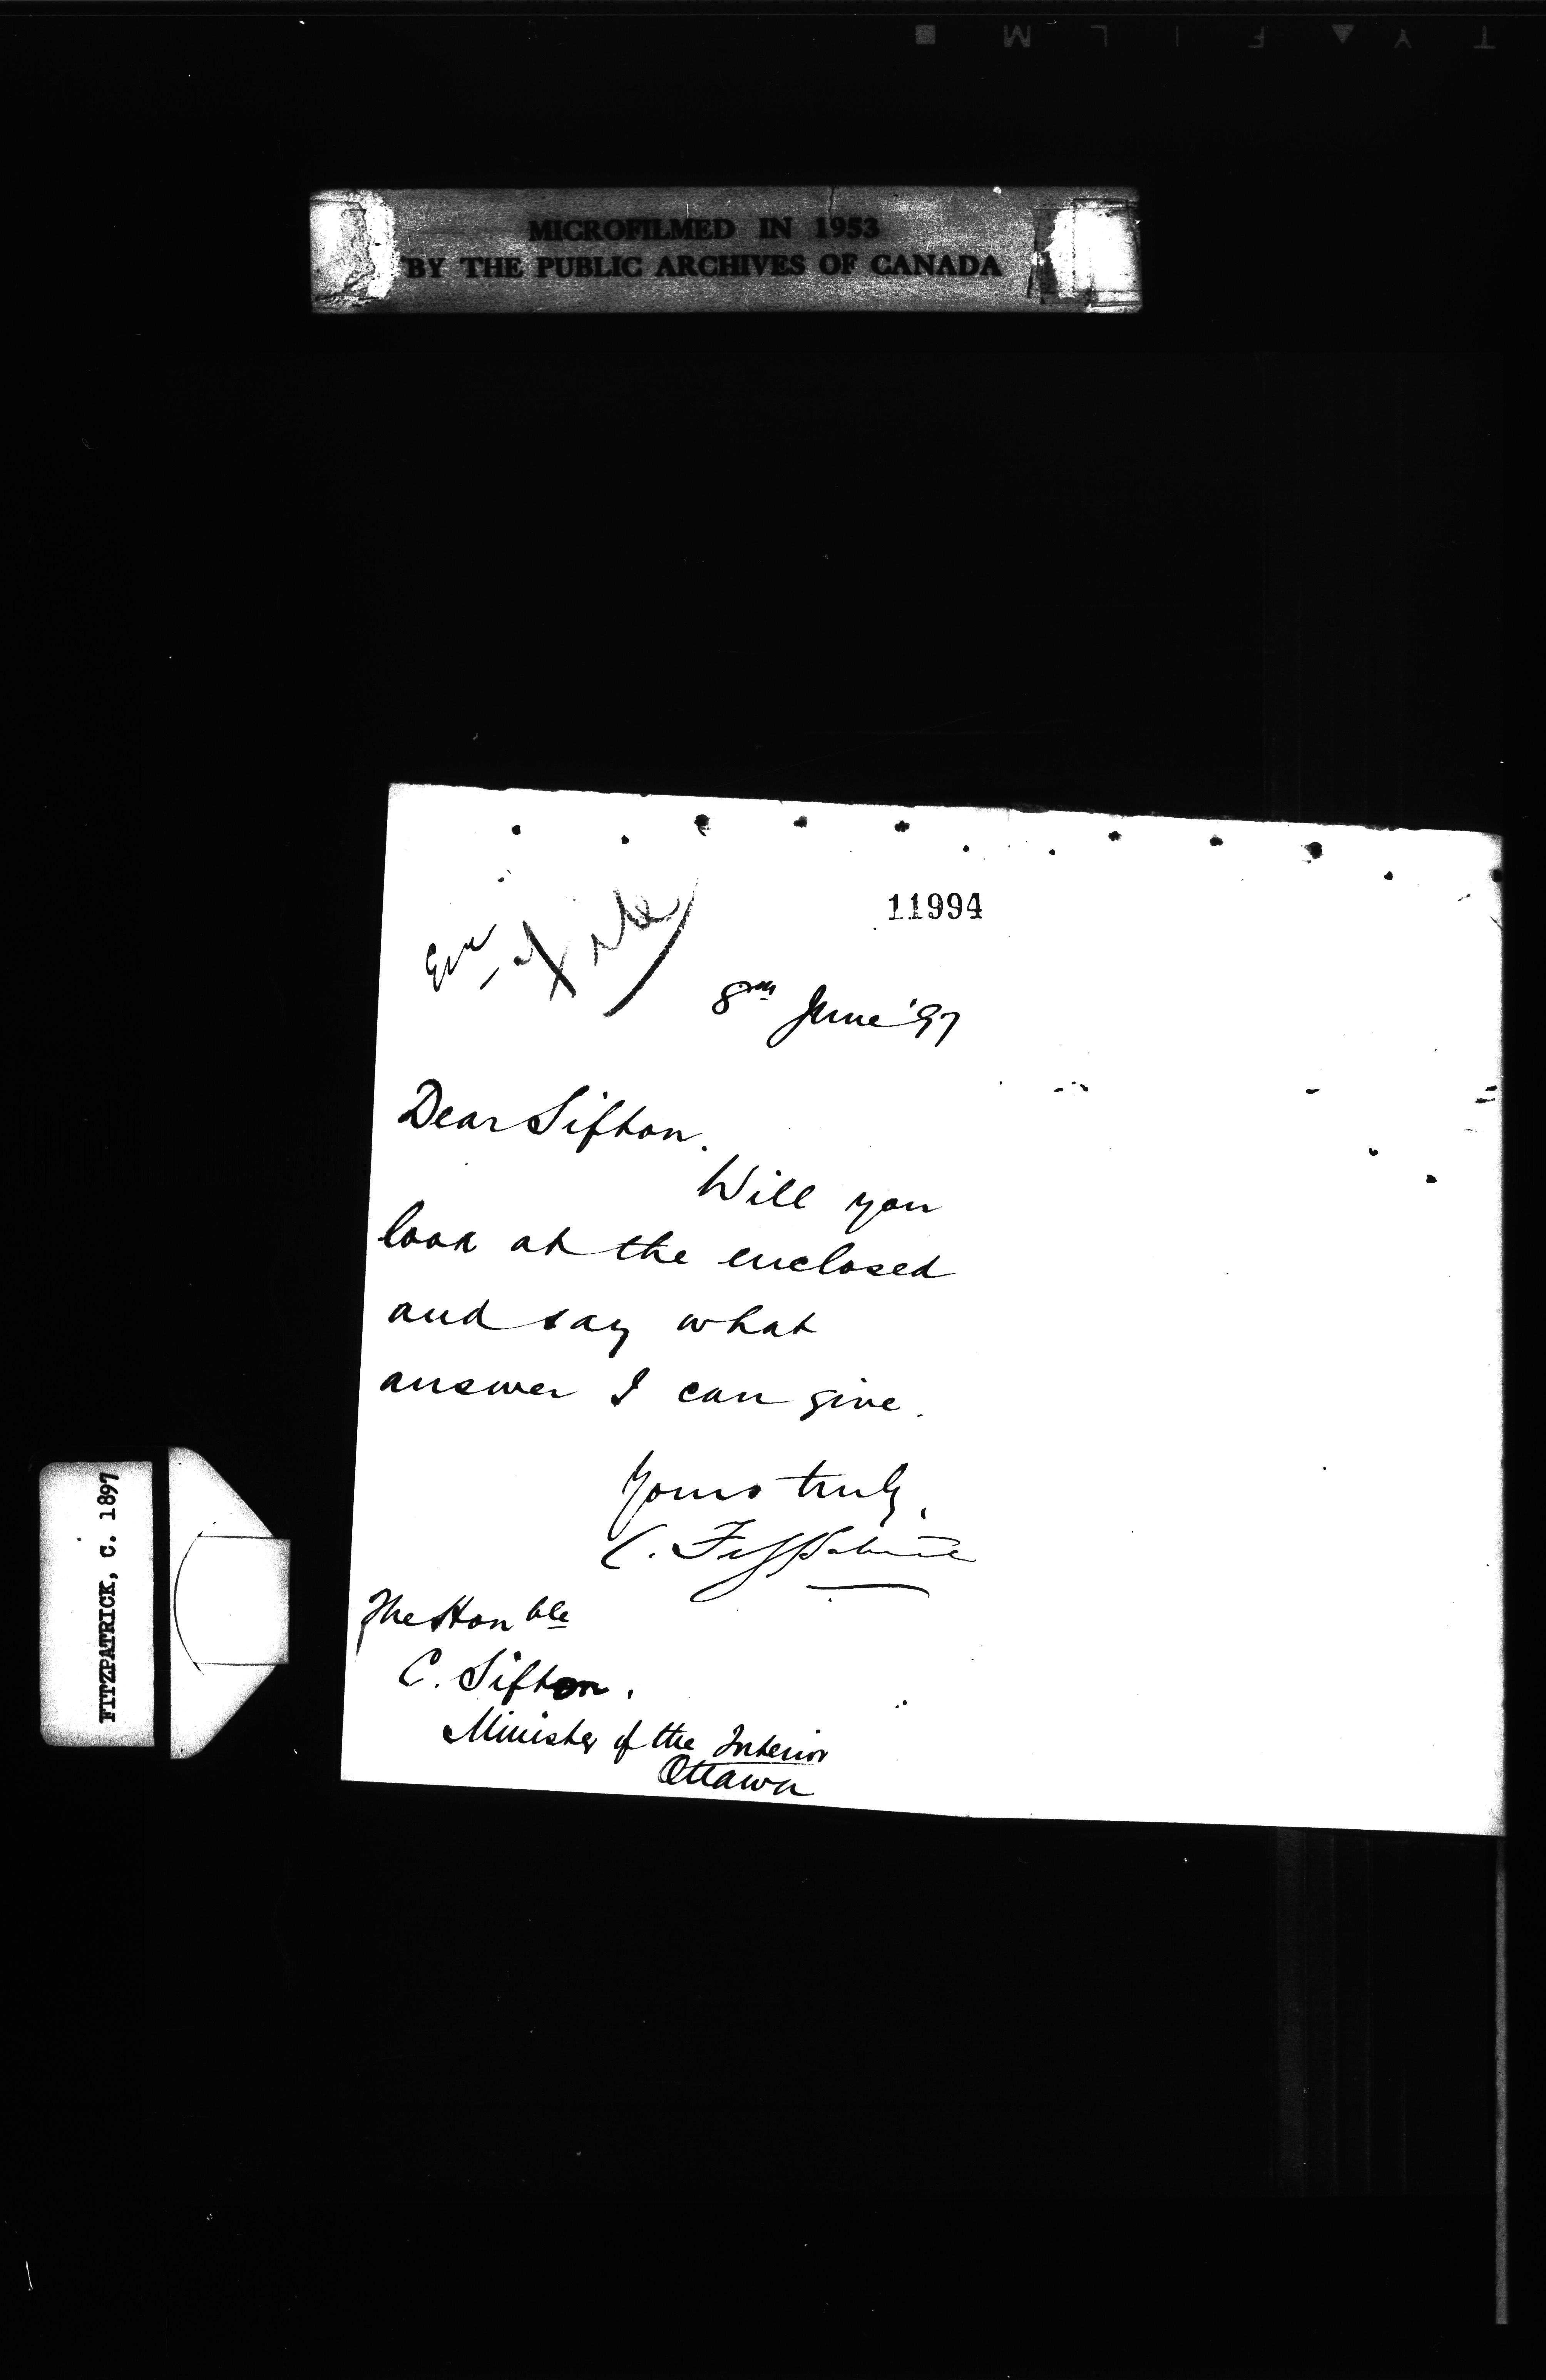 MICROFILMED IN 1953
BY THE PUBLIC ARCHIVES OF CANADA
11994
File
8th June '97
Dear Sifton.
Will you
look at the enclosed
and say what
answer I can give.
Yours truly,
C. Fitzpatrick
The Honble
C. Sifton.
Minister of the Interior
Ottawa
FITZPATRICK, C. 1897